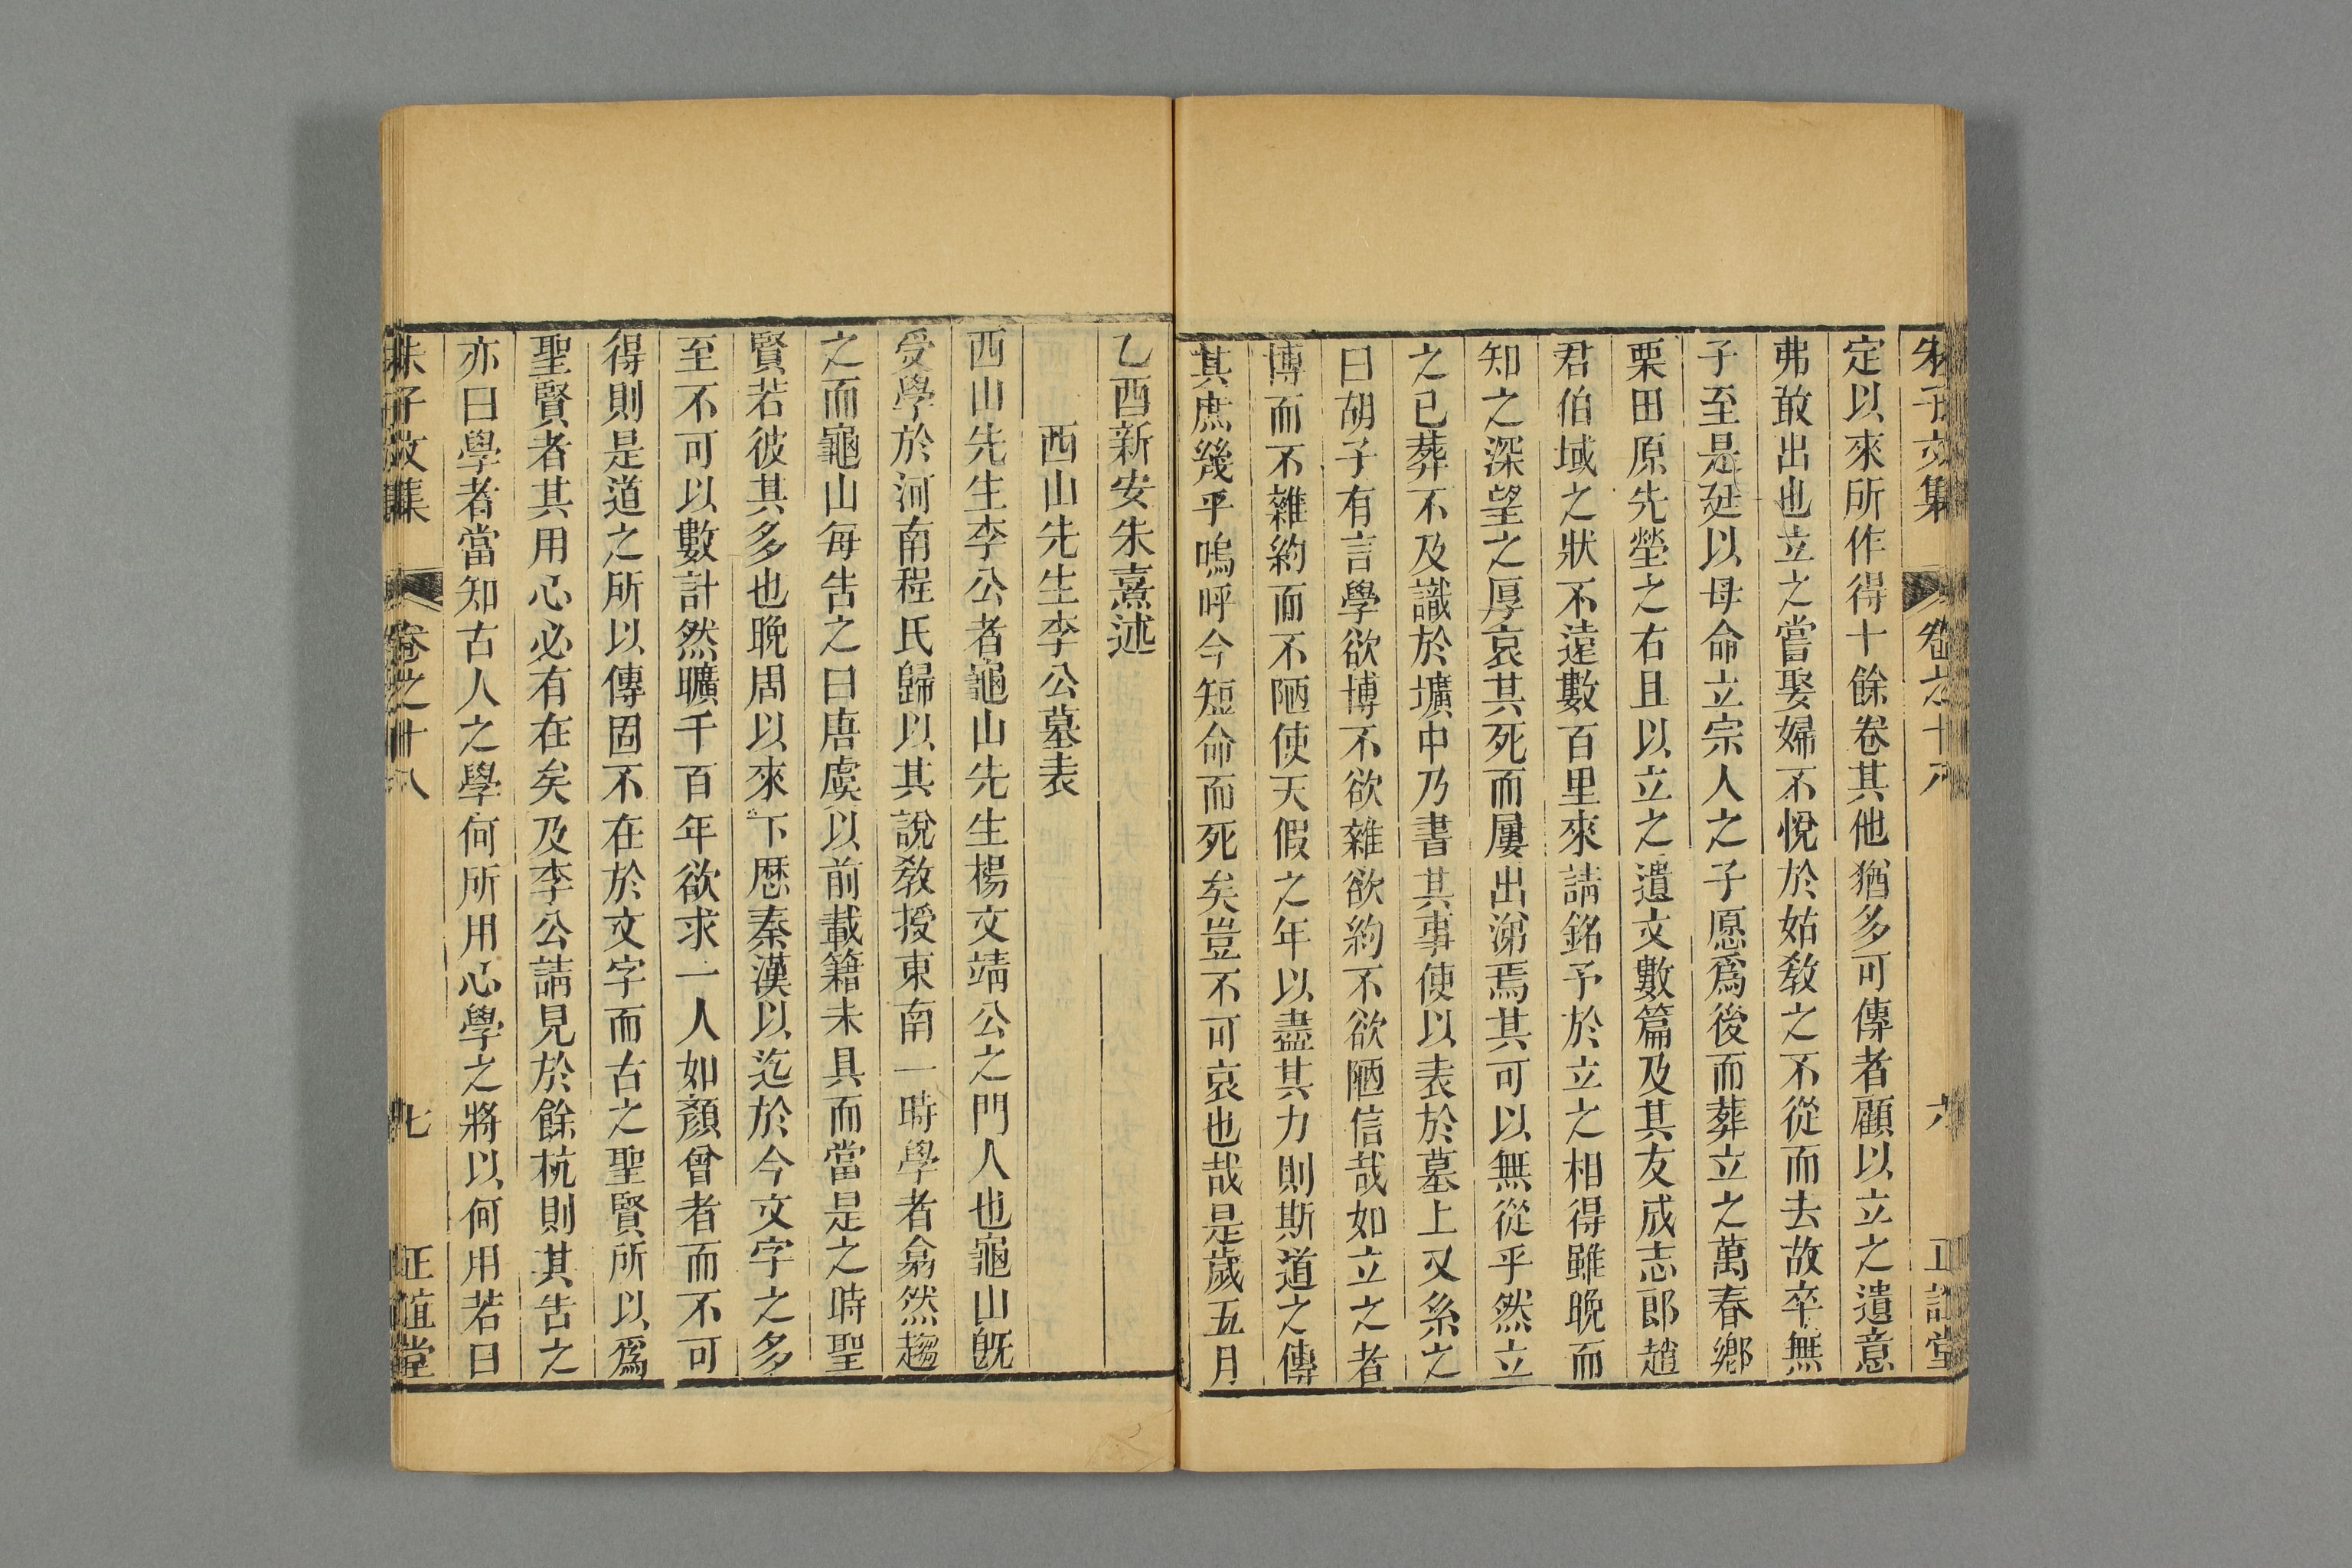 朱子文集 卷之十八 六 正誼堂
定以來所作得十餘卷其他猶多可傳者顧以立之遺意
弗敢出也立之嘗娶婦不悅於姑敎之不從而去故卒無
子至是廷以母命立宗人之子愿爲後而葬立之萬春鄉
栗田原先塋之右且以立之遺文數篇及其友成志郎趙
君伯域之狀不遠數百里來請銘予於立之相得雖晚而
知之深望之厚哀其死而屢出涕焉其可以無從乎然立
之已葬不及識於壙中乃書其事使以表於墓上又系之
曰胡子有言學欲博不欲雜欲約不欲陋信哉如立之者
博而不雜約而不陋使天假之年以盡其力則斯道之傳
其庶幾乎嗚呼今短命而死矣豈不可哀也哉是歲五月
乙酉新安朱熹述
西山先生李公墓表
西山先生李公者龜山先生楊文靖公之門人也龜山旣
受學於河南程氏歸以其說敎授東南一時學者翕然趨
之而龜山每告之曰唐虞以前載籍未具而當是之時聖
賢若彼其多也晚周以來下歷秦漢以迄於今文字之多
至不可以數計然曠千百年欲求一人如顏曾者而不可
得則是道之所以傳固不在於文字而古之聖賢所以爲
聖賢者其用心必有在矣及李公請見於餘杭則其告之
亦曰學者當知古人之學何所用心學之將以何用若曰
朱子文集 卷之十八 七 正誼堂